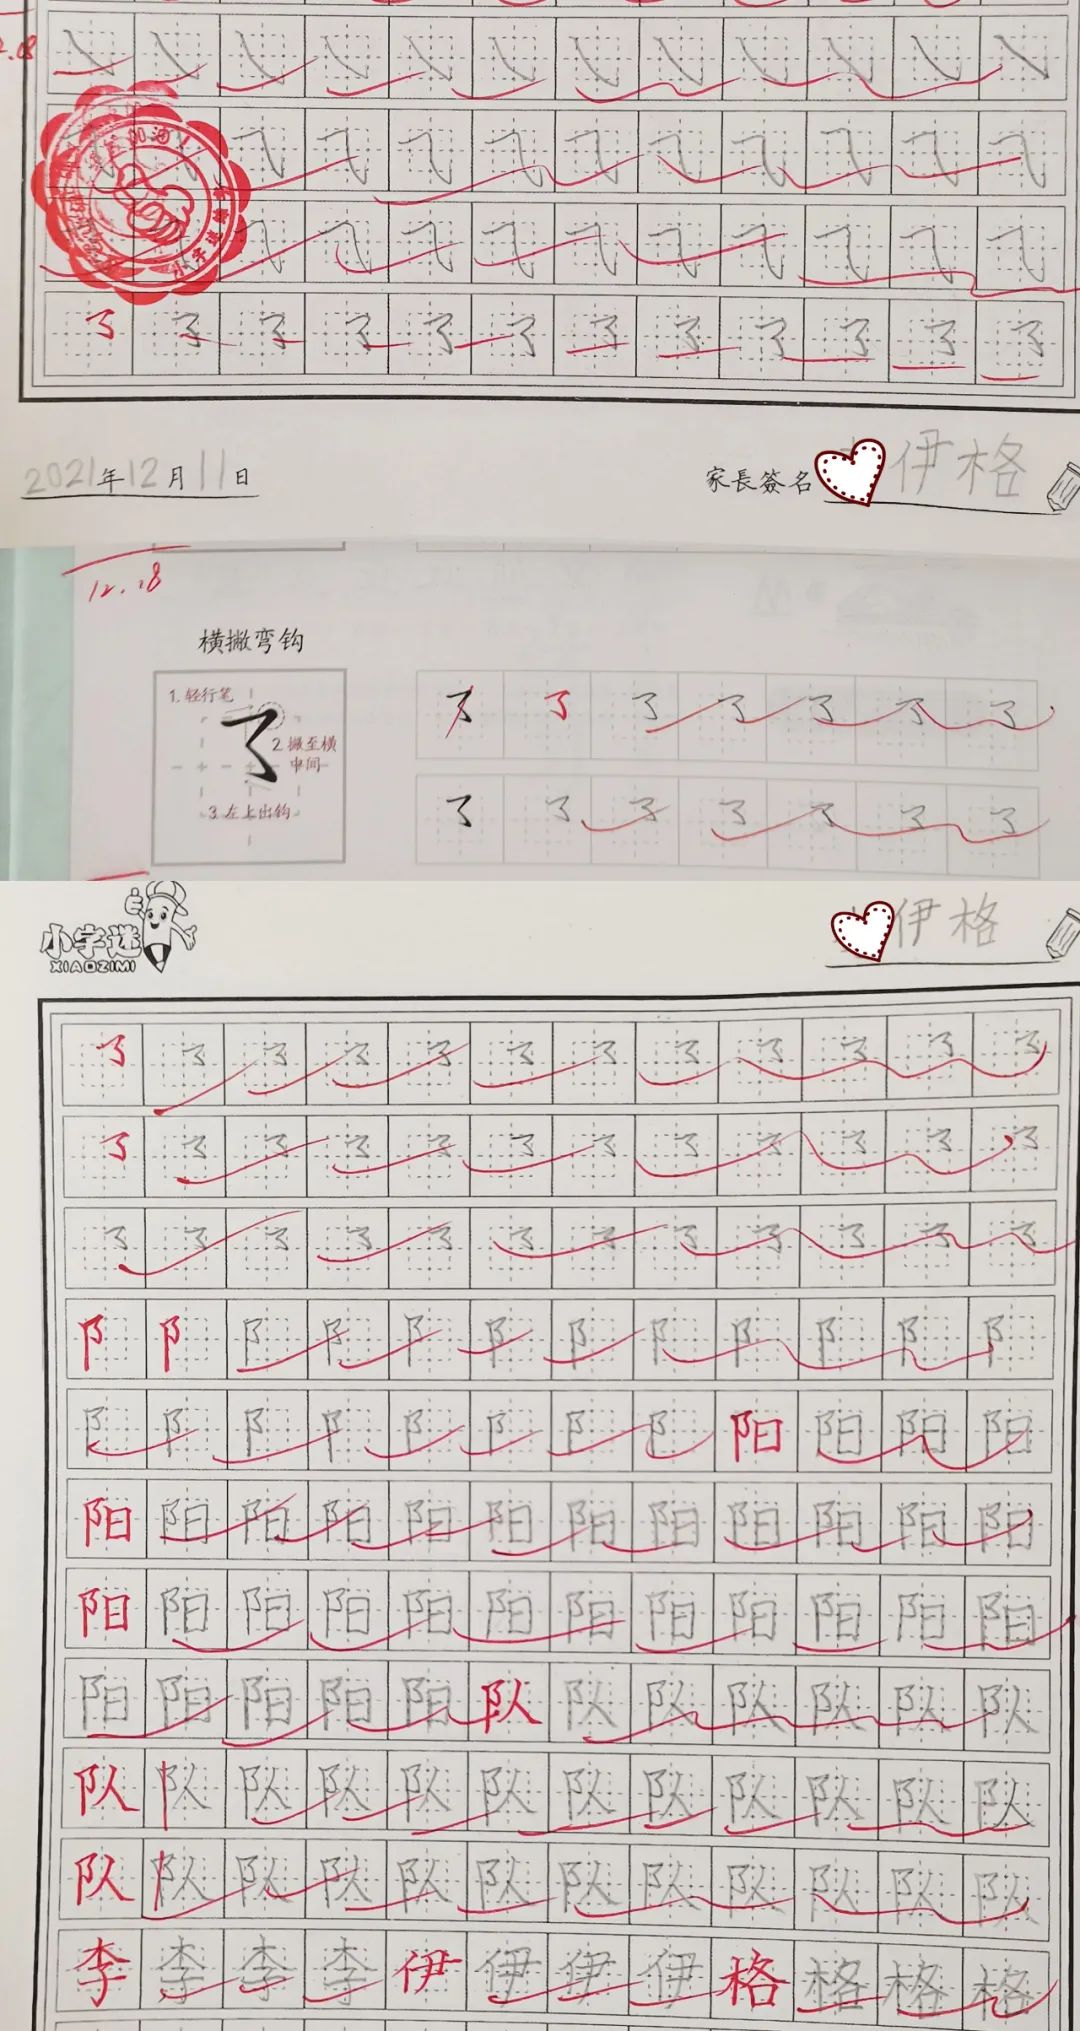 2.18
2021年12月11日
家長簽名 伊格
12.18
横撇弯钩
1.轻行笔
2.撇至横
中间
3.左上出钩
小字迷
XIAOZIMI
伊格
阝 阝 阝 阝 阝 阝 阝 阝 阝 阝 阝 阝
阝 阝 阝 阝 阝 阝 阝 阝 阳 阳 阳 阳
阳 阳 阳 阳 阳 阳 阳 阳 阳 阳 阳 阳
阳 阳 阳 阳 阳 阳 阳 阳 阳 阳 阳 阳
阳 阳 阳 阳 阳 队 队 队 队 队 队 队
队 队 队 队 队 队 队 队 队 队 队 队
队 队 队 队 队 队 队 队 队 队 队 队
李 李 李 李 伊 伊 伊 伊 格 格 格 格